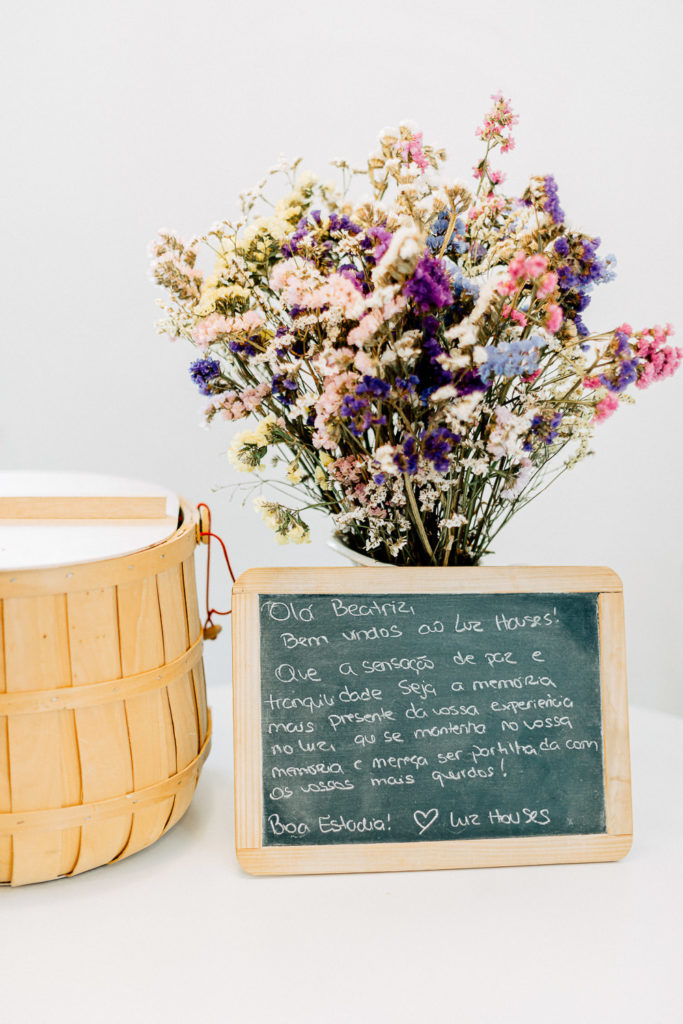 Olá Beatriz,
Bem vindos ao Luz Houses!
Que a sensação de paz e
tranquilidade seja a memória
mais presente da vossa experiência
no Luz, que se mantenha no vossa
memória e mereça ser partilhada com
os vossos mais queridos!
Boa Estadia! ♡ Luz Houses